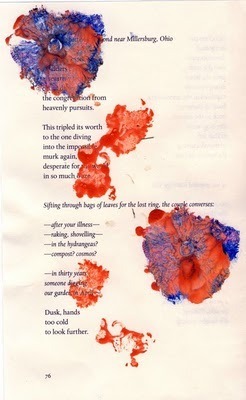 ond near Millersburg, Ohio
the congregation from
heavenly pursuits.
This tripled its worth
to the one diving
into the impossible
murk again,
desperate for
in so much
Sifting through bags of leaves for the lost ring, the couple converses:
—after your illness—
—raking, shovelling—
—in the hydrangeas?
—compost? cosmos?
—in thirty years
someone digging
our garden
Dusk, hands
too cold
to look further.
76